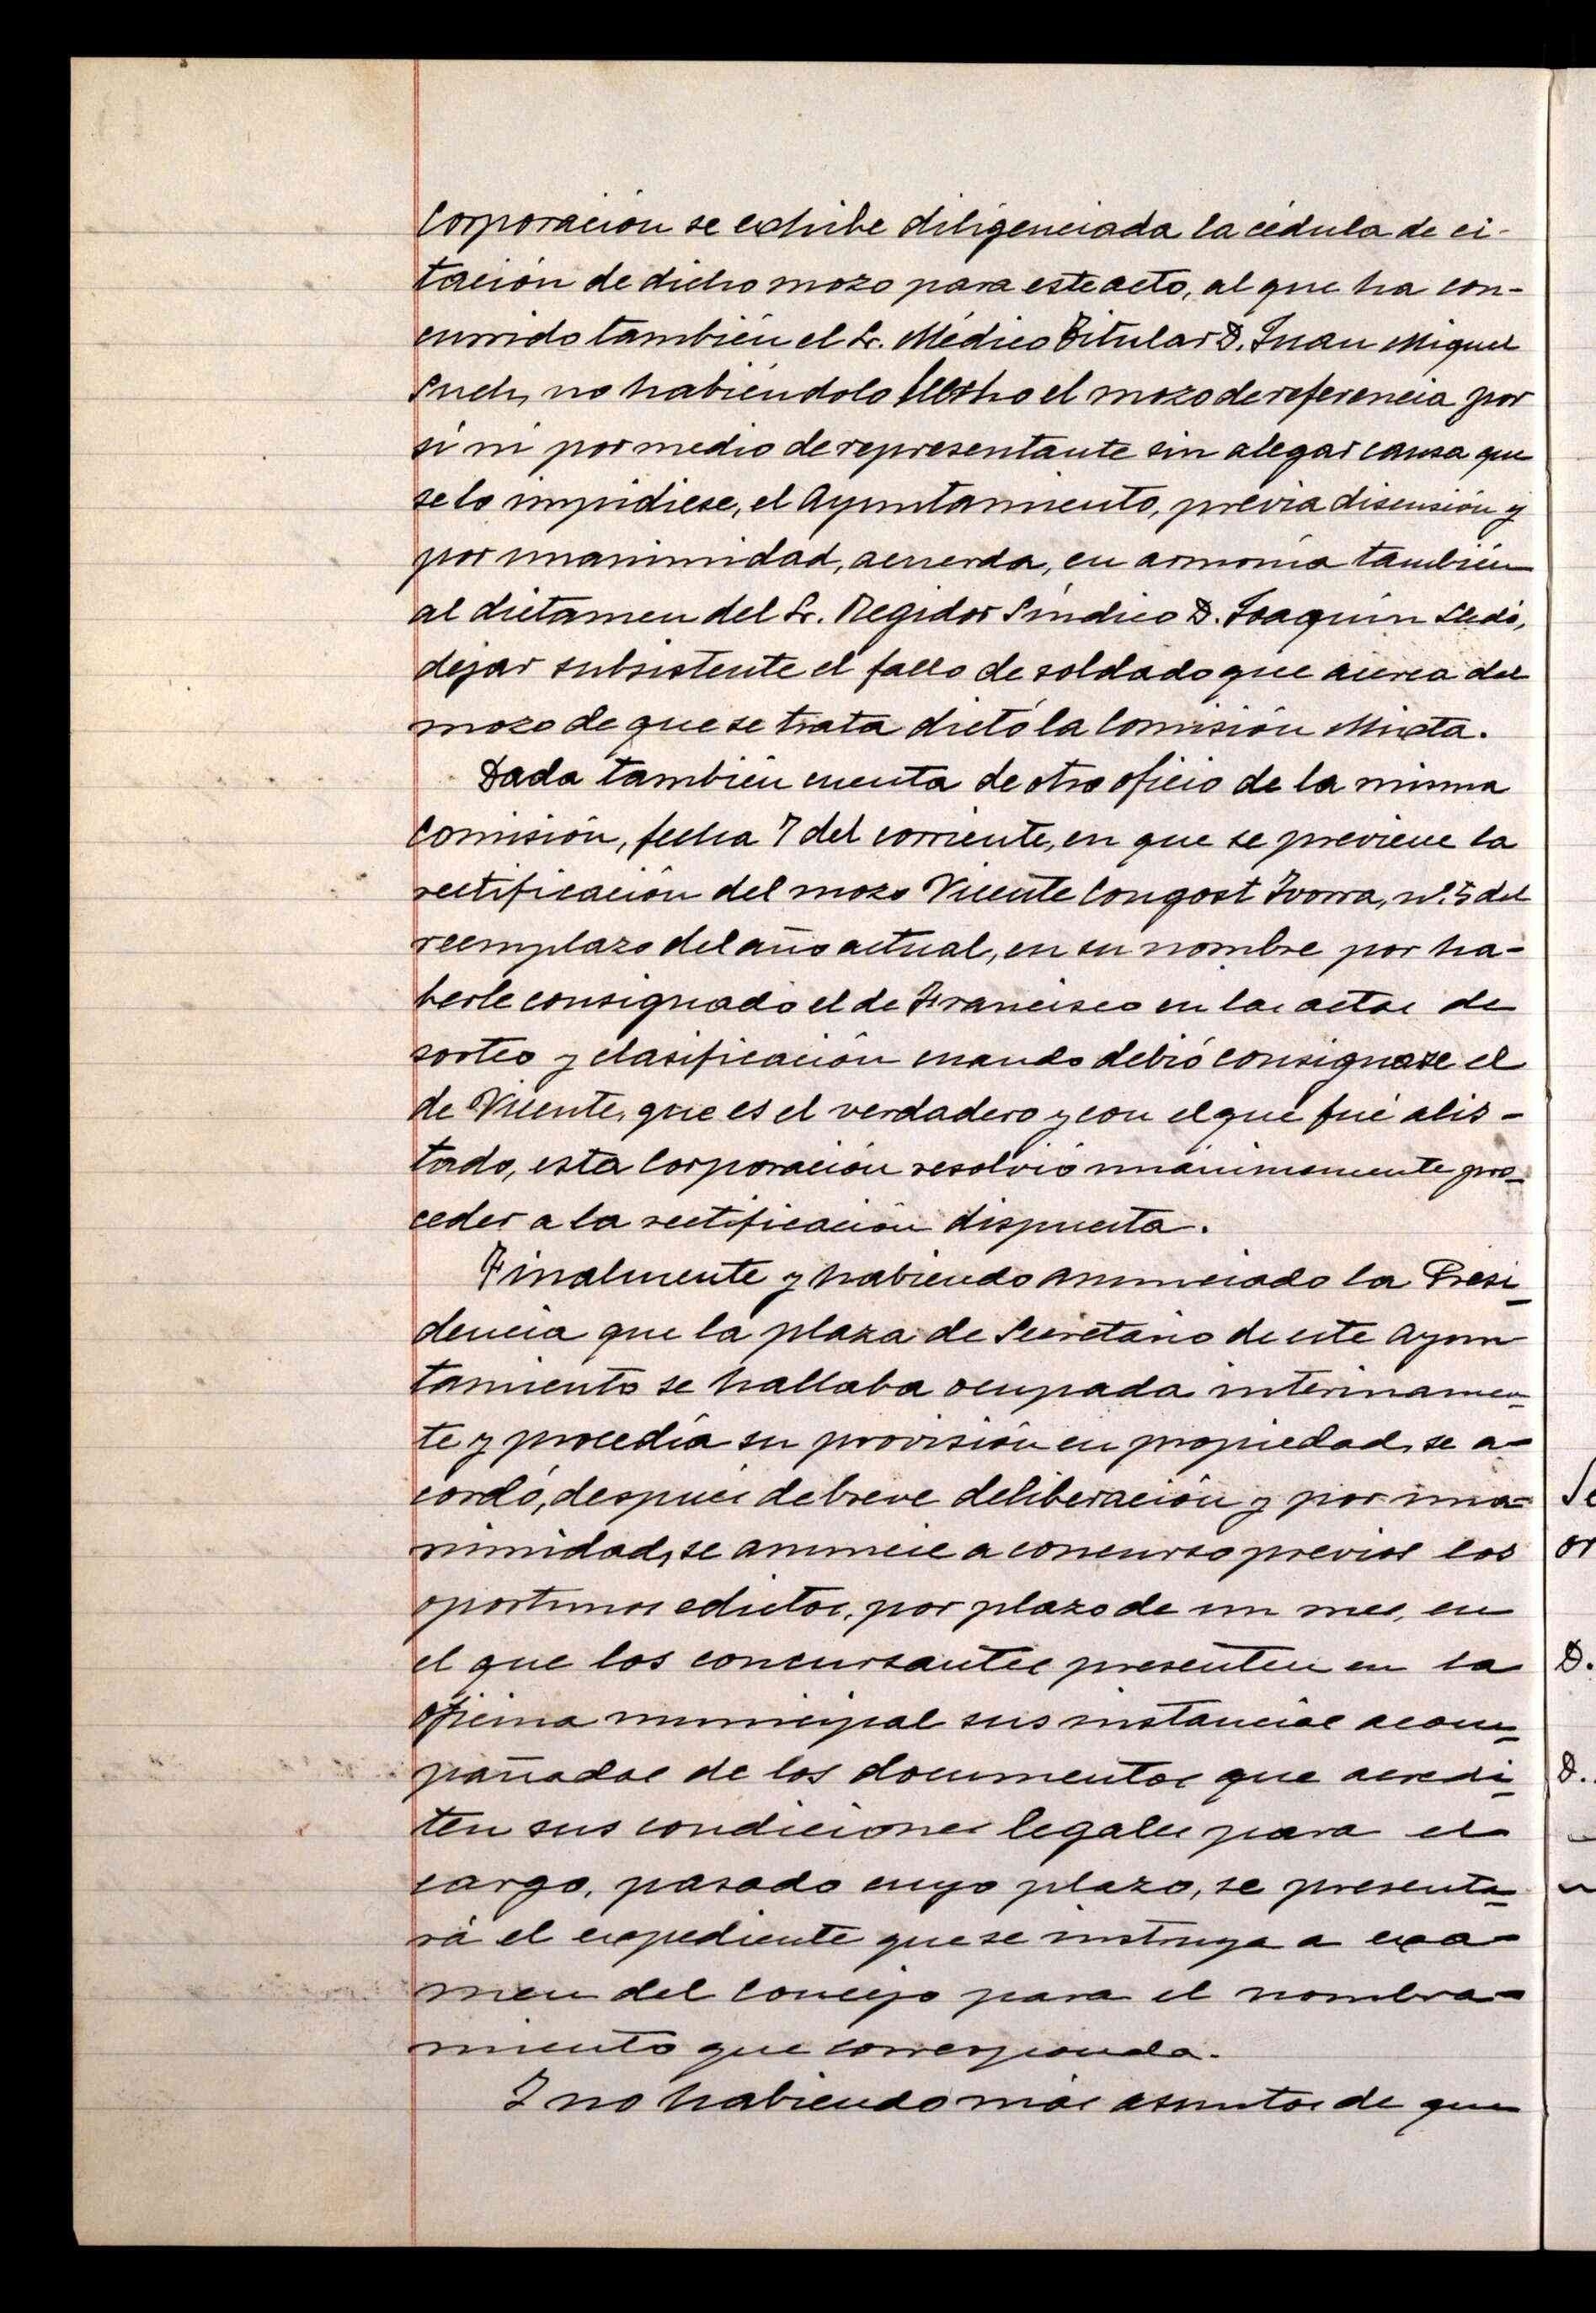 Corporación se exhibe diligenciada la cédula de ci-
tación de dicho mozo para este acto, al que ha con-
currido también el Sr. Médico Titular D. Juan Miguel
Such, no habiéndolo hecho el mozo de referencia por
sí ni por medio de representante sin alegar causa que
se lo impidiese, el Ayuntamiento, previa discusión y
por unanimidad, acuerda, en armonía también
al dictamen del Sr. Regidor Síndico D. Joaquín Lledó,
dejar subsistente el fallo de soldado que acerca del
mozo de que se trata dictó la Comisión Mixta.
Dada también cuenta de otro oficio de la misma
Comisión, fecha 7 del corriente, en que se previene la
rectificación del mozo Vicente Congost Ivorra, nº 5 del
reemplazo del año actual, en su nombre por ha-
berle consignado el de Francisco en las actas de
sorteo y clasificación cuando debió consignarse el
de Vicente, que es el verdadero y con el que fué alis-
tado, esta Corporación resolvió unánimamente pro-
ceder a la rectificación dispuesta.
Finalmente y habiendo anunciado la Presi-
dencia que la plaza de Secretario de este Ayun
tamiento se hallaba ocupada interinamen-
te y procedía su provisión en propiedad, se a-
cordó, después de breve deliberación y por una-
nimidad, se anuncie a concurso previos los
oportunos edictos, por plazo de un mes, en
el que los concursantes presenten en la
oficina municipal sus instancias acom-
pañadas de los documentos que acredi-
ten sus condiciones legales para el
cargo, pasado cuyo plazo, se presenta-
rá el expediente que se instruya a exa-
men del Concejo para el nombra-
miento que corresponda.
I no habiendo más asuntos de que